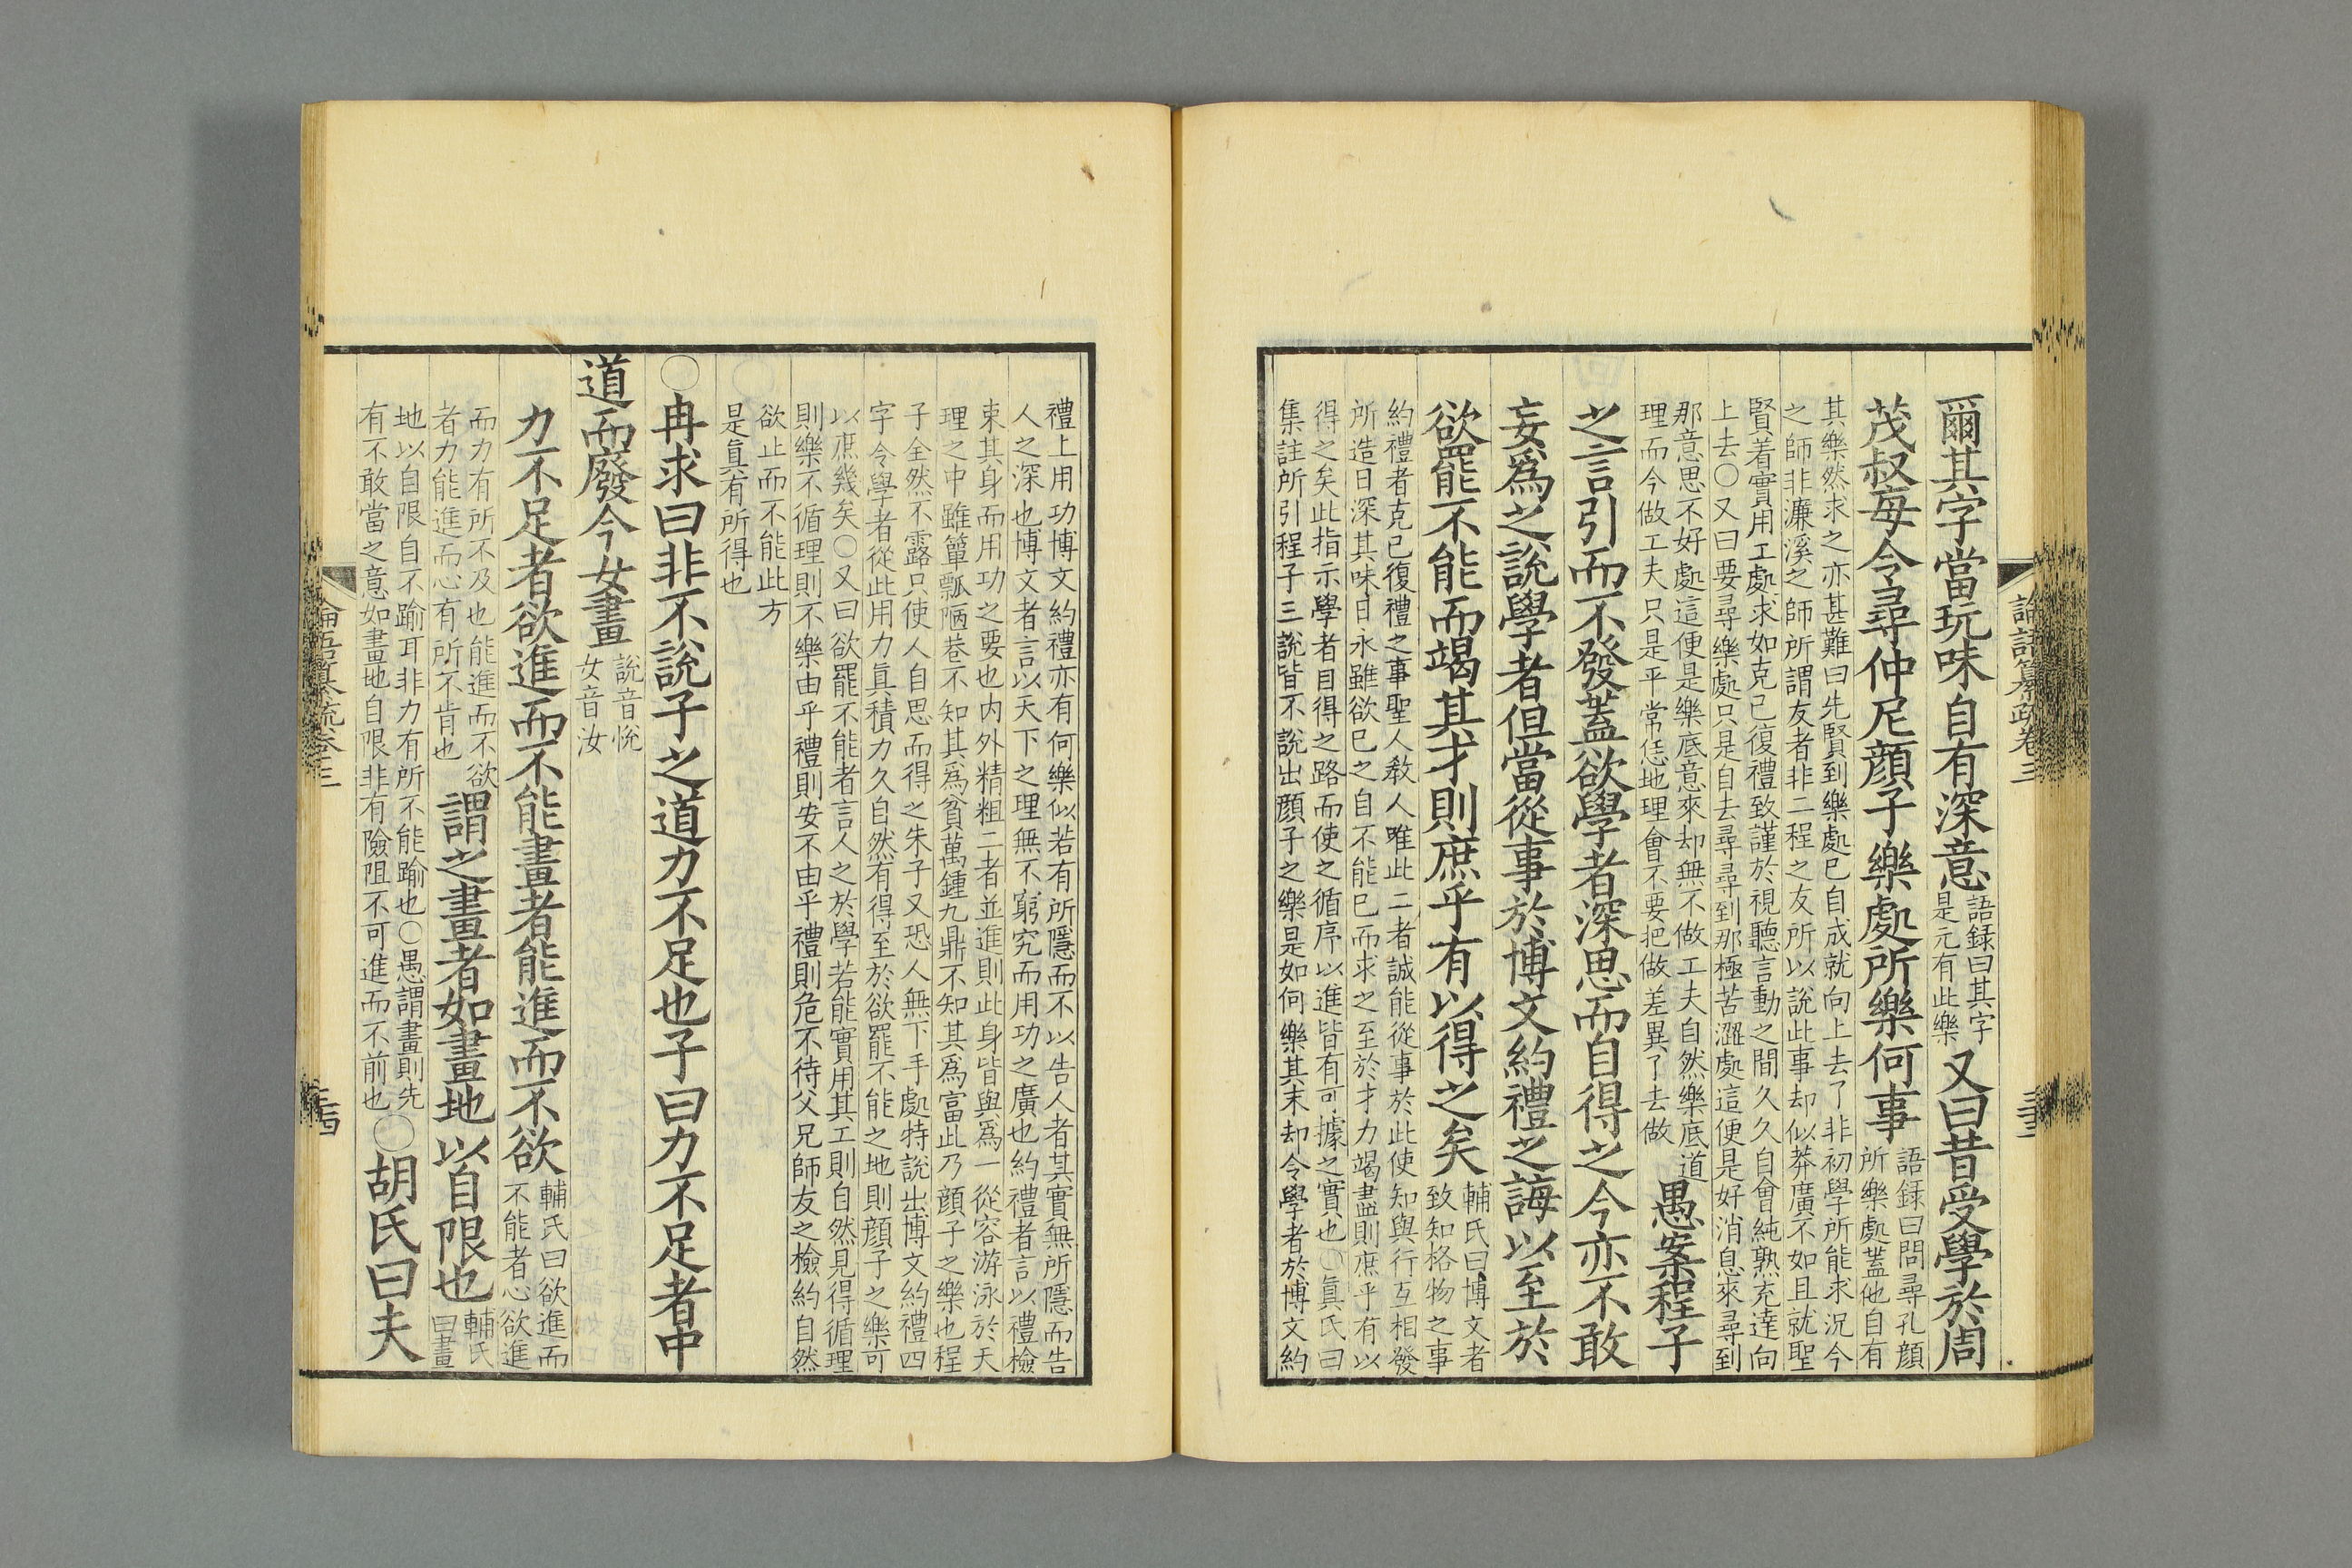 論語纂疏卷三
三十三
爾其字當玩味自有深意語録曰其字是元有此樂又曰昔受學於周
茂叔每令尋仲尼顏子樂處所樂何事語録曰問尋孔顏所樂處蓋他自有
其樂然求之亦甚難曰先賢到樂處已自成就向上去了非初學所能求況今
之師非濂溪之師所謂友者非二程之友所以說此事却似莽廣不如且就聖
賢着實用工處求如克己復禮致謹於視聽言動之間久久自會純熟充達向
上去〇又曰要尋樂處只是自去尋尋到那極苦澀處這便是好消息來尋到
那意思不好處這便是樂底意來却無不做工夫自然樂底道
理而今做工夫只是平常恁地理會不要把做差異了去做愚案程子
之言引而不發蓋欲學者深思而自得之今亦不敢
妄爲之說學者但當從事於博文約禮之誨以至於
欲罷不能而竭其才則庶乎有以得之矣輔氏曰博文者致知格物之事
約禮者克己復禮之事聖人教人唯此二者誠能從事於此使知與行互相發
所造日深其味日永雖欲已之自不能已而求之至於才力竭盡則庶乎有以
得之矣此指示學者目得之路而使之循序以進皆有可據之實也〇眞氏曰
集註所引程子三說皆不說出顏子之樂是如何樂其末却令學者於博文約
禮上用功博文約禮亦有何樂似若有所隱而不以告人者其實無所隱而告
人之深也博文者言以天下之理無不窮究而用功之廣也約禮者言以禮檢
束其身而用功之要也内外精粗二者並進則此身皆與爲一從容游泳於天
理之中雖簞瓢陋巷不知其爲貧萬鍾九鼎不知其爲富此乃顏子之樂也程
子全然不露只使人自思而得之朱子又恐人無下手處特說出博文約禮四
字令學者從此用力眞積力久自然有得至於欲罷不能之地則顏子之樂可
以庶幾矣〇又曰欲罷不能者言人之於學若能實用其工則自然見得循理
則樂不循理則不樂由乎禮則安不由乎禮則危不待父兄師友之檢約自然
欲止而不能此方
是眞有所得也
〇冉求曰非不說子之道力不足也子曰力不足者中
道而廢今女畫說音悅女音汝
力不足者欲進而不能畫者能進而不欲輔氏曰欲進而不能者心欲進
而力有所不及也能進而不欲者力能進而心有所不肯也謂之畫者如畫地以自限也輔氏曰畫
地以自限自不踰耳非力有所不能踰也〇愚謂畫則先
有不敢當之意如畫地自限非有險阻不可進而不前也〇胡氏曰夫
論語纂疏卷三
三十四